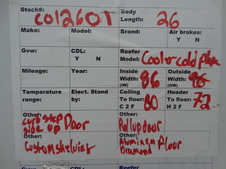 Stock#: CO12601 Body Length: 26
Make: Model: Brand: Air brakes: Y N
Gvw: CDL: Y N Reefer Model: Cool or cold plate
Mileage: Year: Inside Width: 86 Outside Width:
Temperature range: Elect. Stand by: Ceiling To floor: 80 H 2 F Header To floor: 72 H 2 F
Other: curb step side up Door Other: Rollup door
Other: Custom shelving Other: Aluminum Floor Diamond